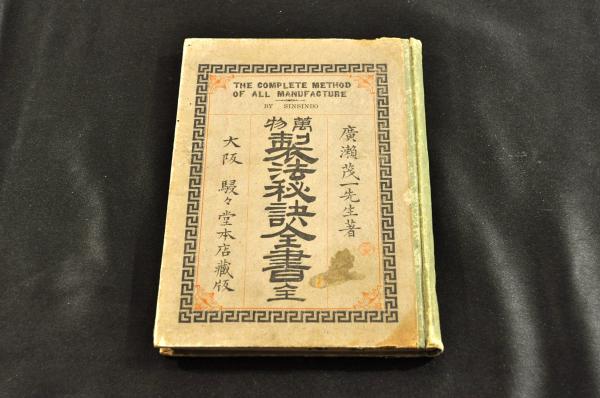 THE COMPLETE METHOD
OF ALL MANUFACTURE
BY SINSINDO
廣瀬茂一先生著
萬物
製法秘訣全書 全
大阪 駸々堂本店藏版